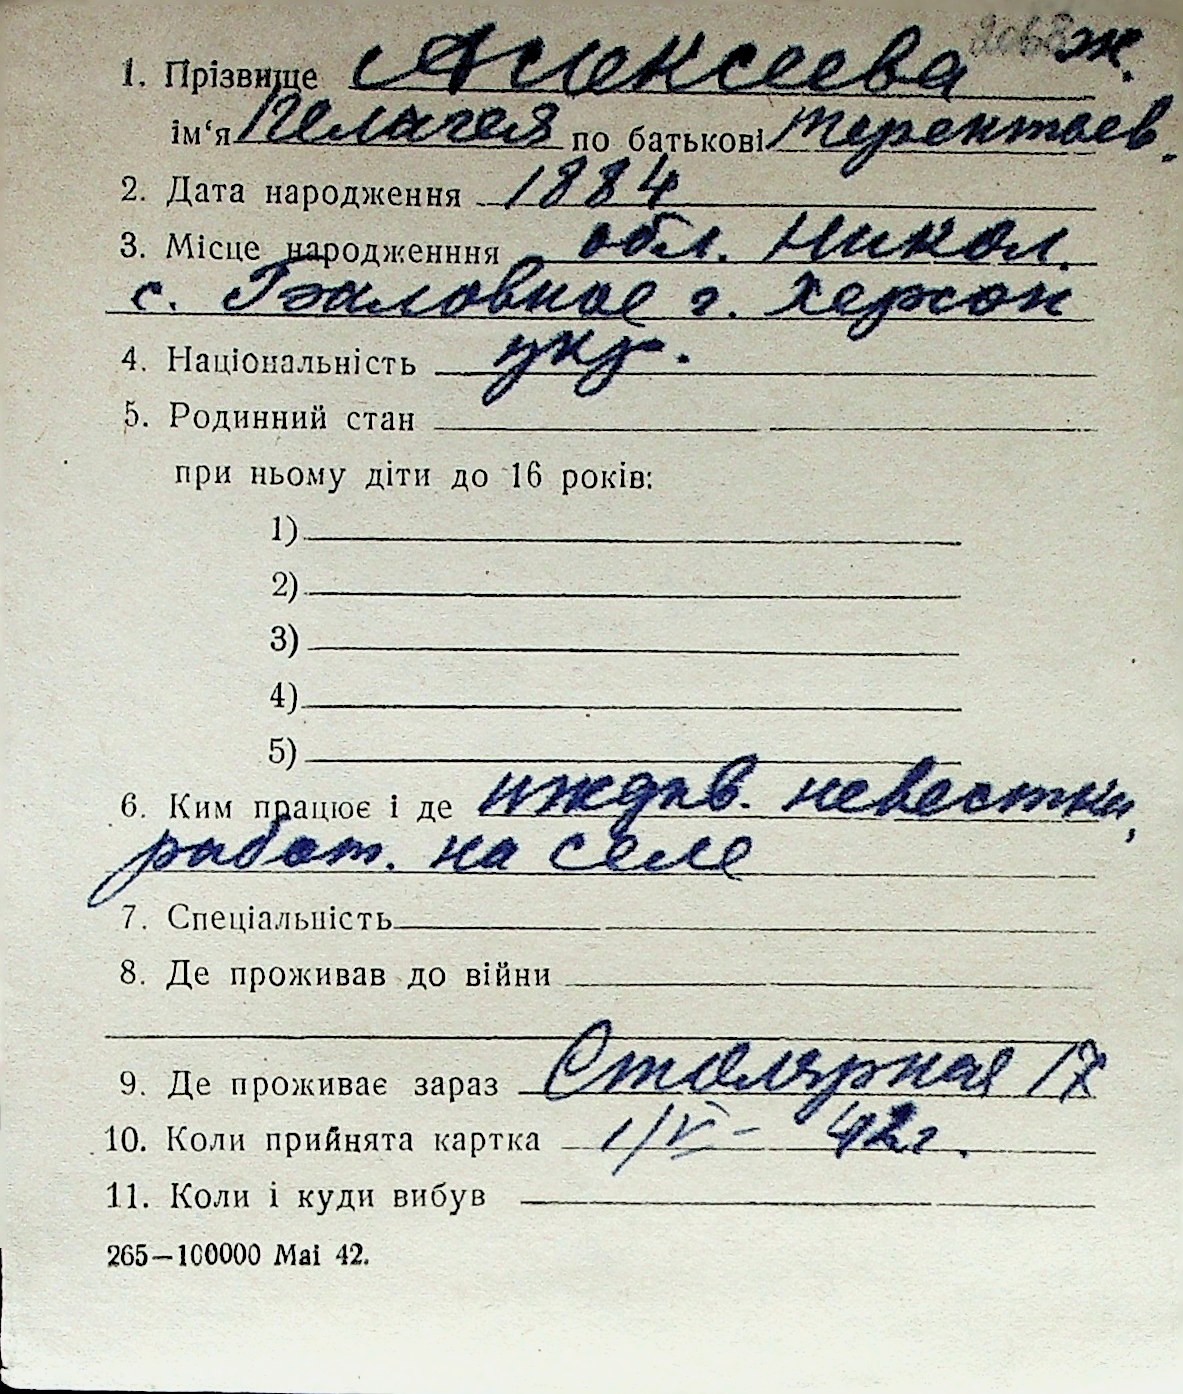 ж.
1. Прізвище Алексеева
ім‘я Пелагея по батькові Терентьев.
2. Дата народження 1884
3. Місце народженння обл. Никол.
с. Баловное г. Херсон
4. Національність укр.
5. Родинний стан
при ньому діти до 16 років:
1)
2)
3)
4)
5)
6. Ким працює і де иждив. невестки,
работ. на селе
7. Спеціальність
8. Де проживав до війни
9. Де проживає зараз Столярная 17
10. Коли прийнята картка 1/VI - 42г.
11. Коли і куди вибув
265—100000 Mai 42.